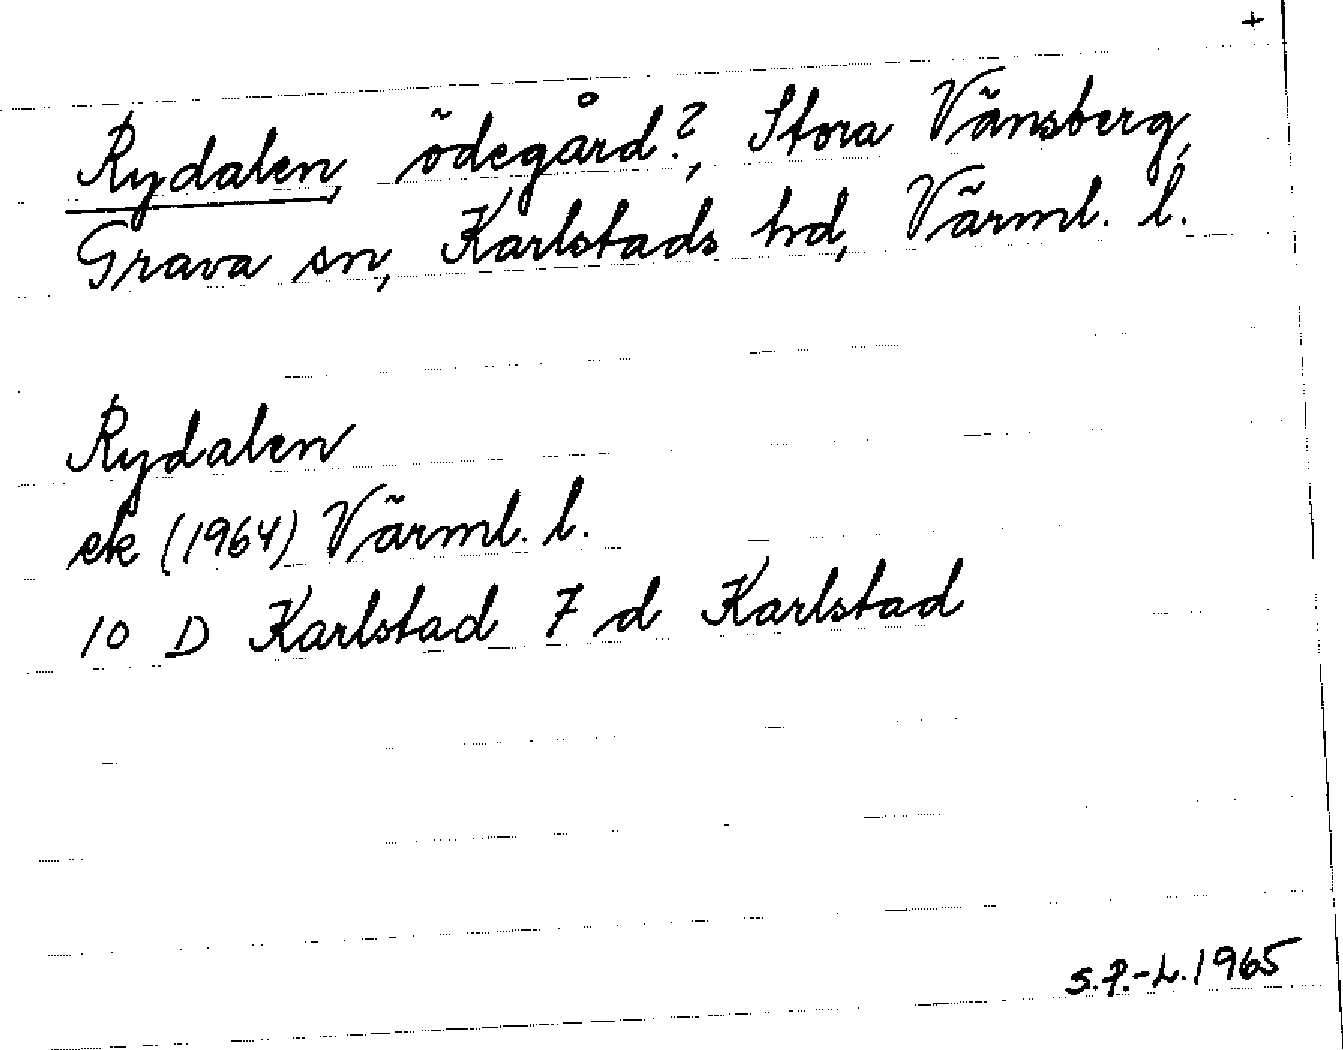 +
Rydalen, ödegård?, Stora Vänsberg,
Grava sn, Karlstads hd, Värml. l.
Rydalen
ek (1964) Värml. l.
10 D Karlstad 7 d Karlstad
S.P.-L. 1965